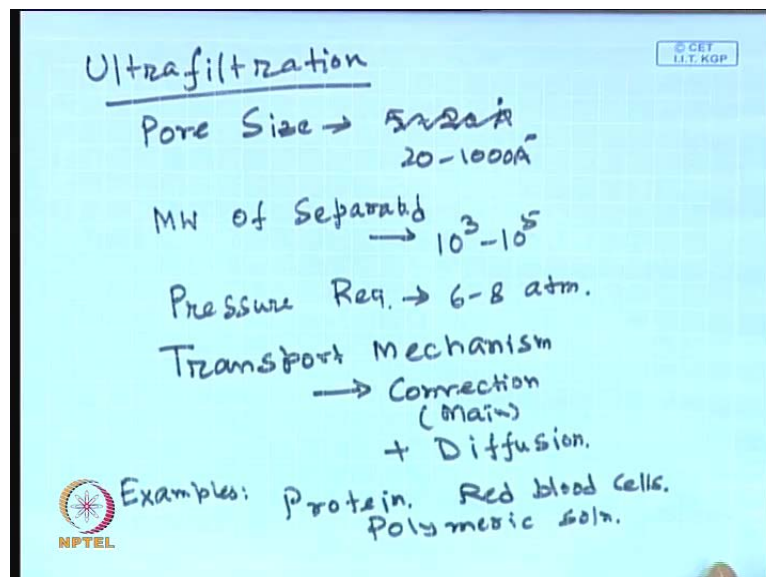 Ultrafiltration
© CET
I.I.T. KGP
Pore Size →
20-1000Å
MW of Separated
→ 10³-10⁵
Pressure Req. → 6-8 atm.
Transport Mechanism
→ Convection
(Main)
+ Diffusion.
Examples: Protein. Red blood cells.
Polymeric soln.
NPTEL